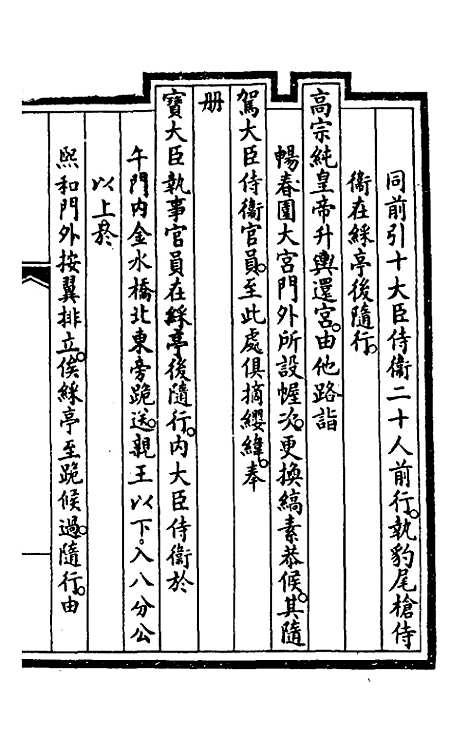 同前引十大臣侍衞二十人前行。執豹尾槍侍
衞在綵亭後隨行。
高宗純皇帝升輿還宮。由他路詣
暢春園大宮門外所設幄次。更換縞素恭候。其隨
駕大臣侍衞官員。至此處俱摘纓緯。奉
册
寶大臣執事官員在綵亭後隨行。內大臣侍衞於
午門內金水橋北東旁跪送。親王以下。入八分公
以上於
熙和門外按翼排立。俟綵亭至跪候過。隨行。由